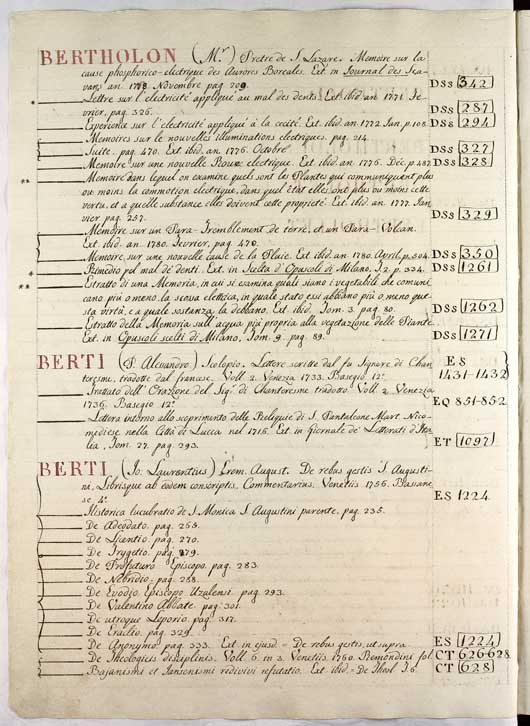 BERTHOLON (Mr.) Pretre de S. Lazare. Memoire sur la
cause phosphorico-electrique des Aurores Boreales. Ext. in Journal des Sca-
vans an. 1778. Novembre pag. 209. DSs 342
Lettre sur l'electricité appliqué au mal des denti. Ext. ibid. an. 1771. Fe-
vrier, pag. 326. DSs 287
Experience sur l'electricité appliqué a la cecité. Ext. ibid. an. 1772. Jan. p. 108. DSs 294
Memoires sur le nouvelles illuminations electriques. pag. 214.
Suite. pag. 470. Ext. ibid. an. 1776. Octobre DSs 327
Memoire sur une nouvelle Boux electrique. Ext. ibid. an. 1776. Dic. p. 487. DSs 328
** Memoire dans lequel on examine quels sont les Plantes qui communiquent plus
ou moins la commotion electrique, dans quel état elles ont plus ou moins cette
vertu, et a quelle substance elles doivent cette proprieté. Ext. ibid. an. 1777. Jan
vier pag. 257. DSs 329
Memoire sur un Para-Tremblement de terre, et un Para-Volcan.
Ext. ibid. an. 1780. Fevrier, pag. 470.
Memoire, sur une nouvelle cause de la Pluie. Ext. ibid. an. 1780. April, p. 504. DSs 350
** Rimedio pel mal de' denti. Ext. in Scelta d'Opuscoli di Milano. T. 2. p. 334. DSs 1261
** Estratto di una Memoria, in cui si examina quali siano i vegetabili che comuni
cano più o meno la scossa elettrica, in quale stato essi abbiano più o meno que
sta virtù, e a quale sostanza la debbano. Ext. ibid. Tom. 3. pag. 80. DSs 1262
Estratto della Memoria sull' acqua più propria alla vegetazione delle Piante.
Ext. in Opuscoli scelti di Milano, Tom. 9. pag. 89. DSs 1271
BERTI (P. Alesandro) Scolopio. Lettere scritte dal fu Signore di Chan ES
teresme, tradotte dal franzese. Voll. 2. Venezia 1733. Basegio 12o. 1431-1432
Trattato dell' Orazione del Sigr. di Chanteresme tradotto. Voll. 2. Venezia
1736. Basegio 12o. EQ 851-852
Lettera intorno allo scoprimento delle Reliquie di S. Pantaleone Mart. Nico-
mediese nella Città di Lucca nel 1715. Ext. in Giornale de' Letterati d'Ita
lia, Tom. 27. pag. 293. ET 1097
BERTI, (Jo: Laurentius) Erem. August. De rebus gestis S. Augusti-
ni, Librisque ab eodem conscriptis. Commentarius. Venetiis 1756. Bassane
se 4o. ES 1224
Historica lucubratio de S. Monica S. Augustini parente. pag. 235.
De Adeodato. pag. 265.
De Licentio. pag. 270.
De Trygetio. pag. 279.
De Profuturo Episcopo. pag. 283.
De Nebridio. pag. 288.
De Evodio Episcopo Uzalensi. pag. 293.
De Valentino Abbate. pag. 301.
De utroque Leporio. pag. 317.
De Eraclio. pag. 329.
De Anonymo. pag. 333. Ext. in ejusd. = De rebus gestis, ut supra. ES 1224
De Theologicis disciplinis. Voll. 6. in 3. Venetiis 1760. Remondini fol. CT 626-628
Bajanismi et Jansenismi redivivi refutatio. Ext. ibid. = De Theol. T. 6. CT 628